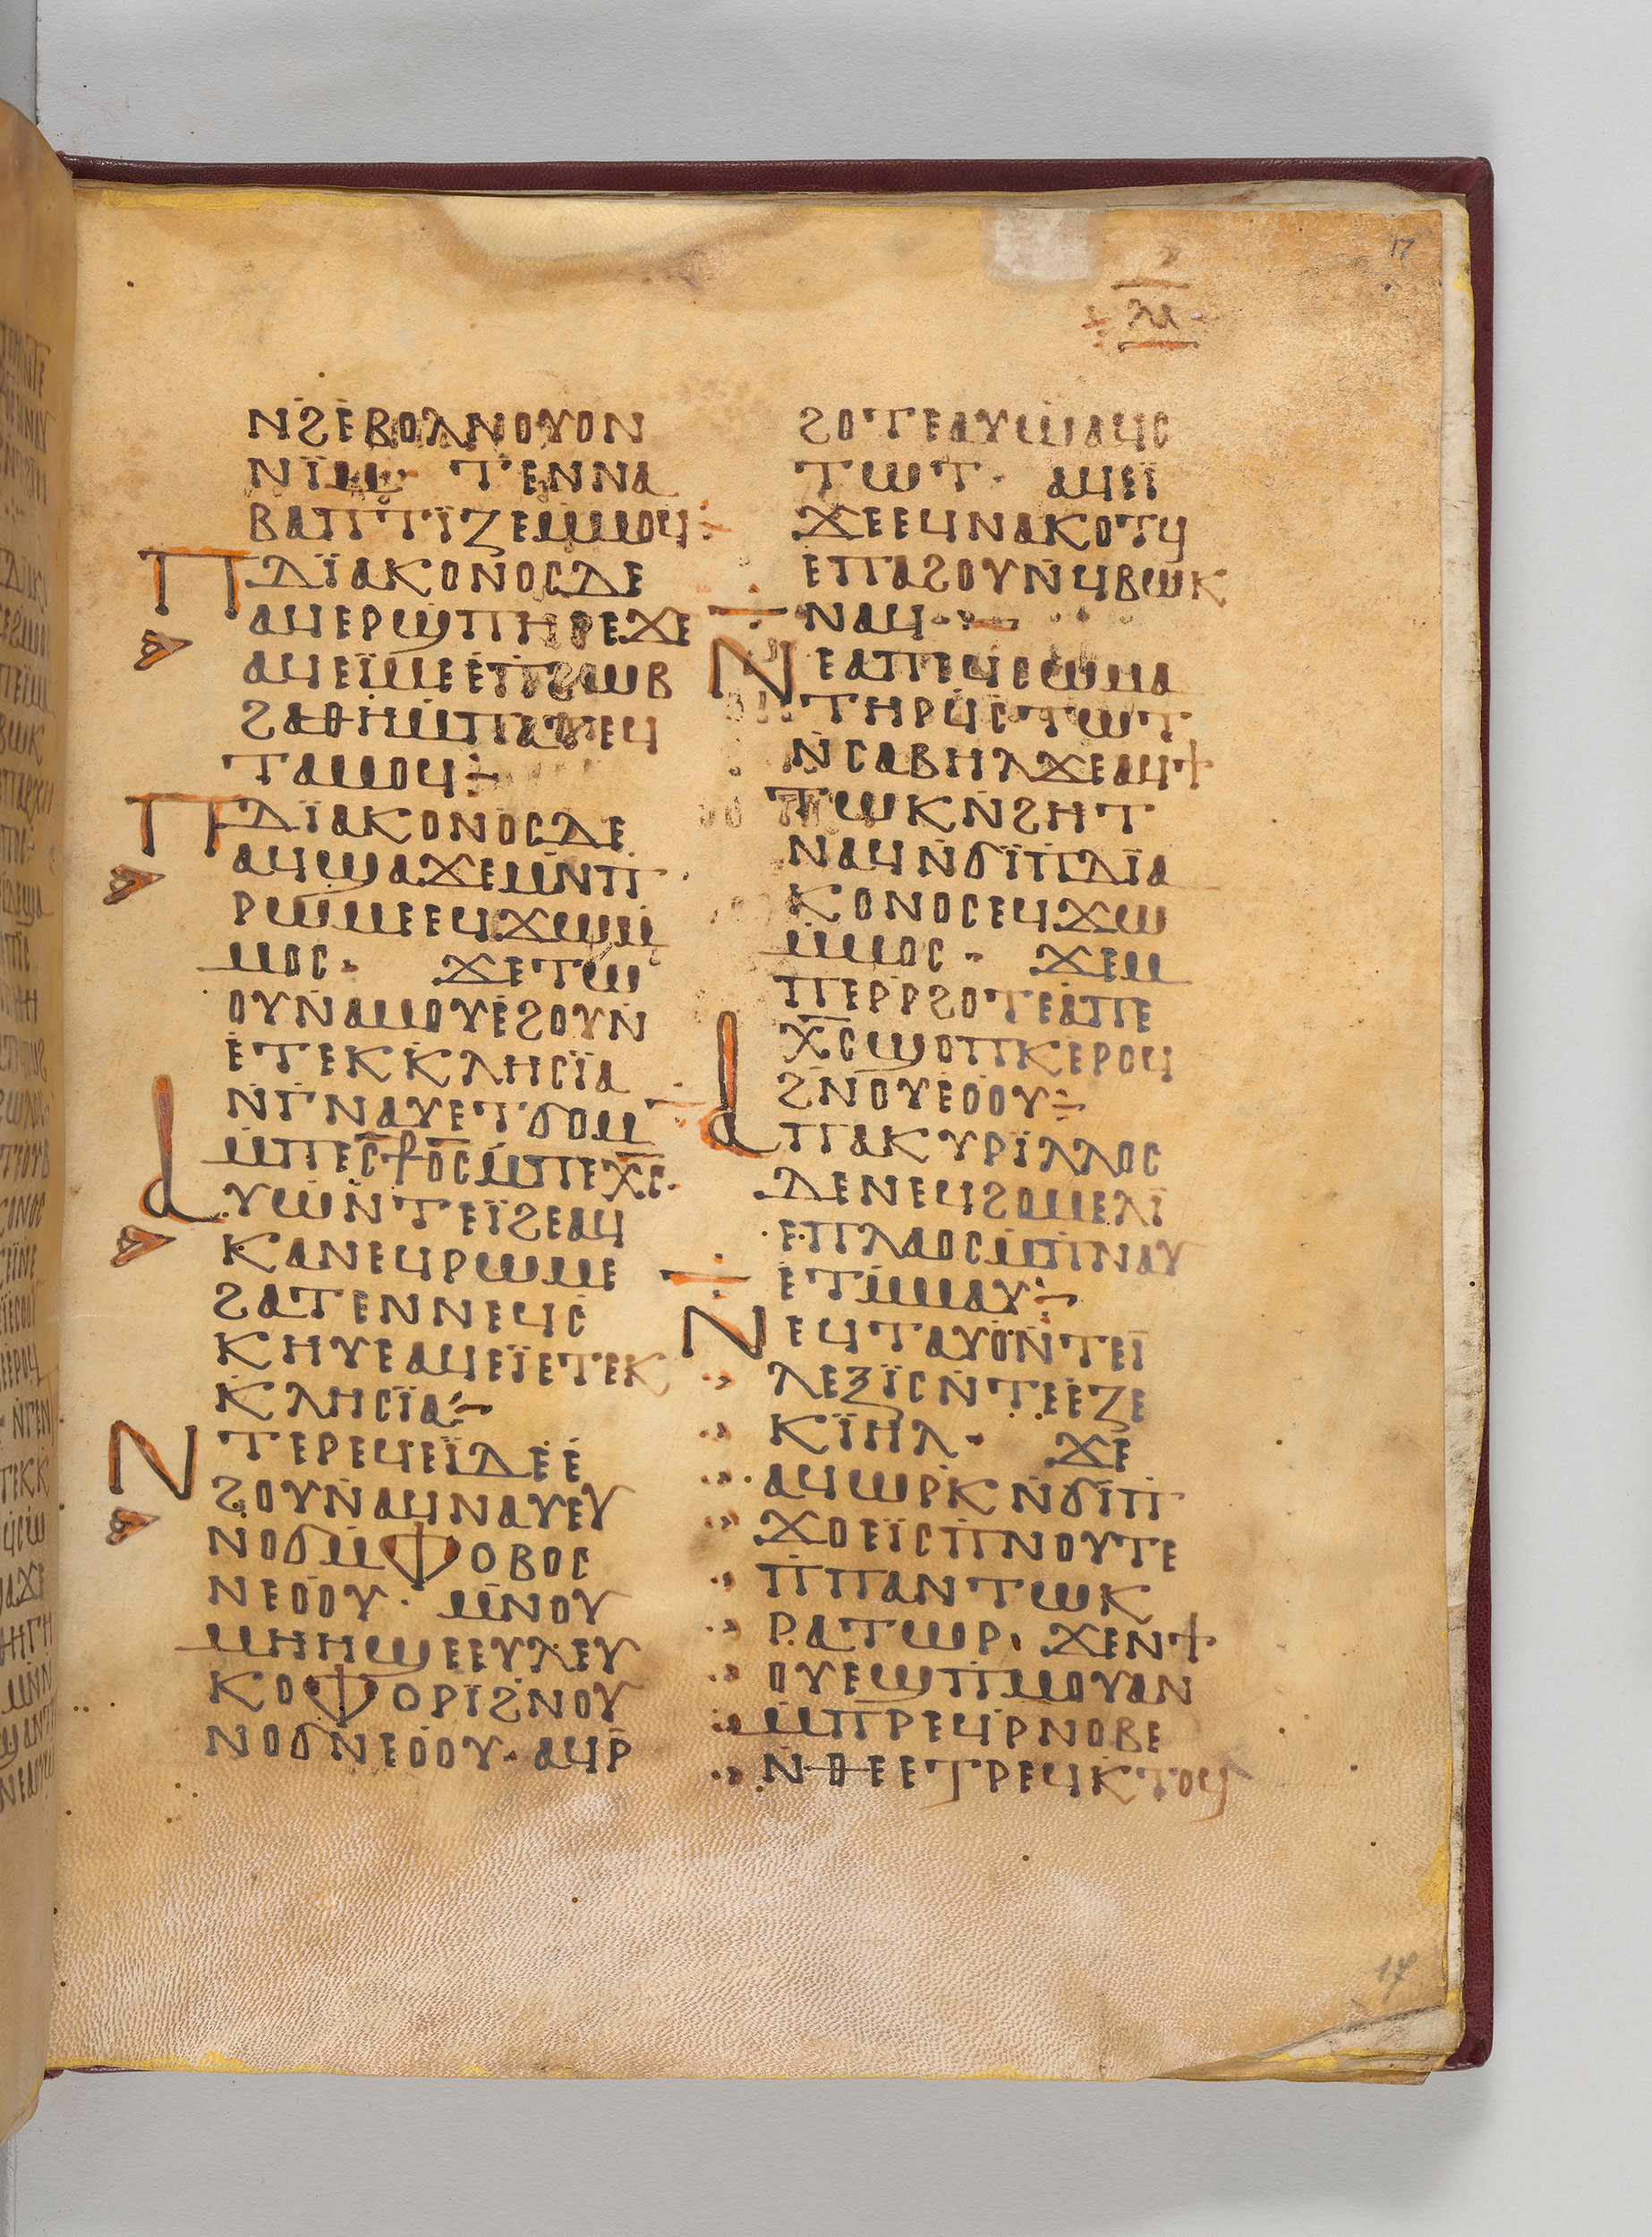 17
ⲗⲁ
ⲛϩⲉⲃⲟⲗⲛⲟⲩⲟⲛ
ⲛⲓ̈ⲙ· ⲧⲉⲛⲛⲁ
ⲃⲁⲡⲧⲓ̈ⲍⲉⲙⲙⲟϥ÷
ⲡⲇⲓ̈ⲁⲕⲟⲛⲟⲥⲇⲉ
ⲁϥⲉⲣϣⲡⲏⲣⲉϫⲉ
ⲁϥⲉⲓ̈ⲙⲉⲉ̇ⲡ̇ϩⲱⲃ
ϩⲁⲑⲏⲙ̇ⲡⲁⲧⲉϥ
ⲧⲁⲙⲟϥ÷
ⲡⲇⲓ̈ⲁⲕⲟⲛⲟⲥⲇⲉ
ⲁϥϣⲁϫⲉⲙⲛ̇ⲡ
ⲣⲱⲙⲉⲉϥϫⲱⲙ̇
ⲙⲟⲥ· ϫⲉⲧⲱ
ⲟⲩⲛ̇ⲁⲙⲟⲩⲉ̇ϩⲟⲩⲛ
ⲉ̇ⲧⲉⲕⲕⲗⲏⲥⲓ̈ⲁ
ⲛ̇ⲅ̇ⲛⲁⲩⲉⲧϭⲟⲙ
ⲙ̇ⲡⲉⲥ̅⳨ⲟ̅ⲥⲙ̇ⲡⲉⲭ̅ⲥ̅·
ⲁⲩⲱⲛ̇ⲧⲉⲓ̈ϩⲉⲁϥ
ⲕⲁⲛⲉϥⲣⲱⲙⲉ
ϩⲁⲧⲉⲛⲛⲉϥⲥ̇
ⲕⲏⲩⲉⲁϥⲉⲓ̈ⲉⲧⲉⲕ
ⲕⲗⲏⲥⲓ̈ⲁ÷
ⲛⲧⲉⲣⲉϥⲉⲓ̈ⲇⲉⲉ̇
ϩⲟⲩⲛ̇ⲁϥⲛⲁⲩⲉⲩ
ⲛⲟϭⲙ̇ⲫⲟⲃⲟⲥ
ⲛⲉⲟ̇ⲟⲩ· ⲙⲛ̇ⲟⲩ
ⲙⲏⲏϣⲉⲉⲩⲗⲉⲩ
ⲕⲟⲫⲟⲣⲓ̈ϩⲛ̇ⲟⲩ
ⲛⲟϭⲛ̇ⲉⲟ̇ⲟⲩ· ⲁϥⲣ̇
ϩⲟⲧⲉⲁⲩⲱⲁϥⲥ
ⲧⲱⲧ· ⲁϥⲉⲓ̈
ϫⲉⲉϥⲛⲁⲕⲟⲧϥ
ⲉⲡⲁϩⲟⲩⲛ̇ϥⲃⲱⲕ
ⲛⲁϥ·:–
ⲛⲉⲁⲡⲉϥⲥⲱⲙⲁ
ⲧⲏⲣϥⲥⲧⲱⲧ
ⲛ̇ⲥⲁⲃⲏⲗϫⲉⲁϥϯ
ⲧⲱⲕⲛ̇ϩⲏⲧ
ⲛⲁϥⲛ̇ϭⲓ̈ⲡ̇ⲇⲓ̈ⲁ
ⲕⲟⲛⲟⲥⲉϥϫⲱ
ⲙ̇ⲙⲟⲥ· ϫⲉⲙ
ⲡⲉⲣⲣ̇ϩⲟⲧⲉⲁ̇ⲡⲉ
ⲭ̅ⲥϣⲟⲡⲕ̇ⲉⲣⲟϥ
ϩⲛ̇ⲟⲩⲉ̇ⲟ̇ⲟⲩ÷
ⲁⲡⲁⲕⲩⲣⲓ̈ⲗⲗⲟⲥ
ⲇⲉⲛⲉϥϩⲟⲙⲉⲗⲓ̈
ⲉ̇ⲡⲗⲁⲟⲥⲙ̇ⲡ̇ⲛⲁⲩ
ⲉ̇ⲧⲙ̇ⲙⲁⲩ÷
ⲛⲉϥⲧⲁⲩⲟⲛ̇ⲧⲉⲓ̈
ⲗⲉⲝⲓ̈ⲥⲛ̇ⲧⲉⲉ̇ⲍⲉ
ⲕⲓ̈ⲏⲗ· ϫⲉ
ⲁϥⲱⲣⲕ̇ⲛ̇ϭⲓ̈ⲡ̇
ϫⲟⲉⲓ̈ⲥⲡ̇ⲛⲟⲩⲧⲉ
ⲡ̇ⲡⲁⲛⲧⲱⲕ
ⲣⲁⲧⲱⲣ· ϫⲉⲛϯ
ⲟⲩⲉϣⲡ̇ⲙⲟⲩⲁⲛ
ⲙ̇ⲡⲣⲉϥⲣ̇ⲛⲟⲃⲉ
ⲛ̇ⲑⲉⲉⲧⲣⲉϥⲕ̇ⲧⲟϥ
17